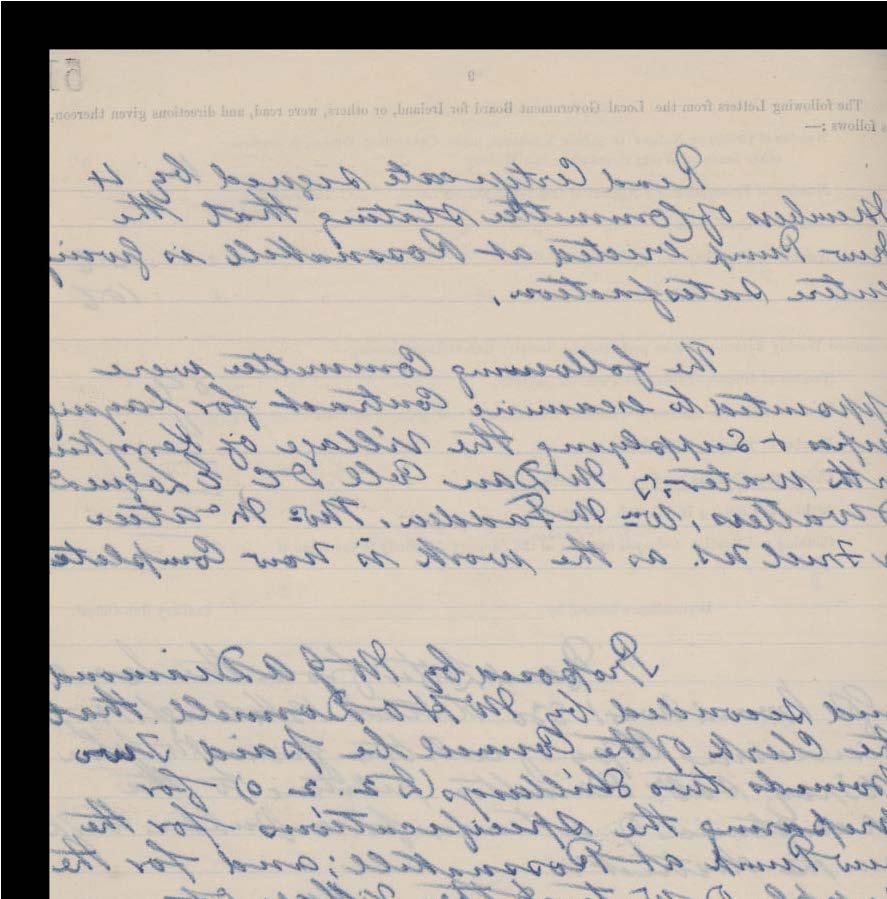 9
The following Letters from the Local Government Board for Ireland, or others, were read, and directions given thereon,
s follows :—
Read Certificate signed by 4
Members of Committee stating that the
new Pump erected at Rossnakill is giving
entire satisfaction.
The following Committee were
appointed to examine Contract for laying
pipes & Supplying the village of
with water, Mr Dan Call DC
Watters, Wm McFadden, Thos McAteer
Friel as the work is now Complete
Proposed by Mr J A Diamond
and seconded by Mr H O'Donnell that
the Clerk of the Council be paid Two
Pounds two shillings (£2. 2. 0) for
preparing the specifications for the
new Pump at Rossnakill; and for the